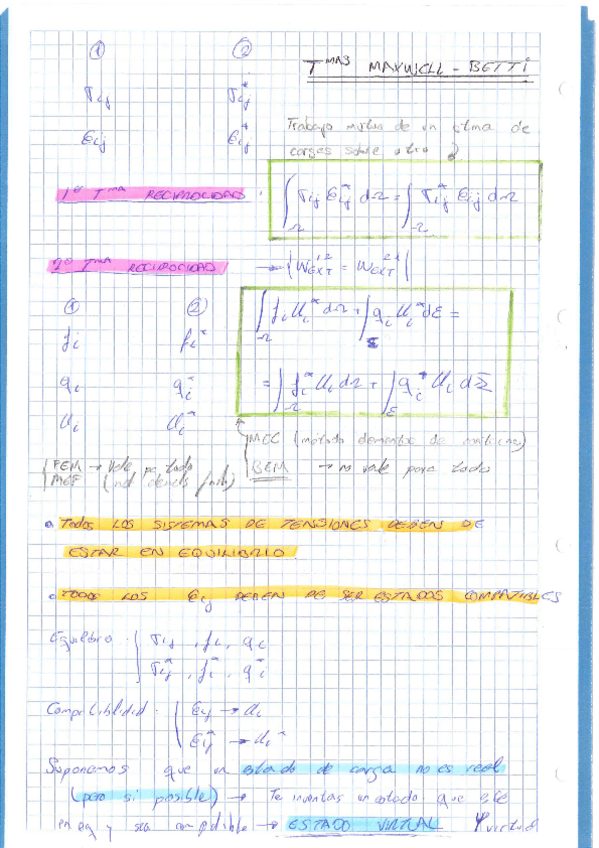 ① ②
Tᵐᵃˢ MAXWELL - BETTI
σij σij*
Trabajo mutuo de un stma de
εij εij*
cargas sobre otro
1º Tᵐᵃ RECIPROCIDAD: ∫Ω σij εij* dΩ = ∫Ω σij* εij dΩ
2º Tᵐᵃ RECIPROCIDAD → | W_EXT¹² = W_EXT²¹ |
① ②
∫Ω fi Ui* dΩ + ∫Σ qi Ui* dΣ =
fi fi*
qi qi*
= ∫Ω fi* Ui dΩ + ∫Σ qi* Ui dΣ
Ui Ui*
MEC (método elementos de
FEM → Vale pa todo
BEM → no vale para todo
MEF
• TODOS LOS SISTEMAS DE TENSIONES DEBEN DE
ESTAR EN EQUILIBRIO.
• TODOS LOS εij DEBEN DE SER ESTADOS COMPATIBLES
Equilibrio { σij, fi, qi
σij*, fi*, qi*
Compatibilidad { εij → Ui
εij* → Ui*
Suponemos que un estado de carga no es real
(pero si posible) → Te inventas un estado que esté
en eq y sea compatible → ESTADO VIRTUAL Ψvirtual